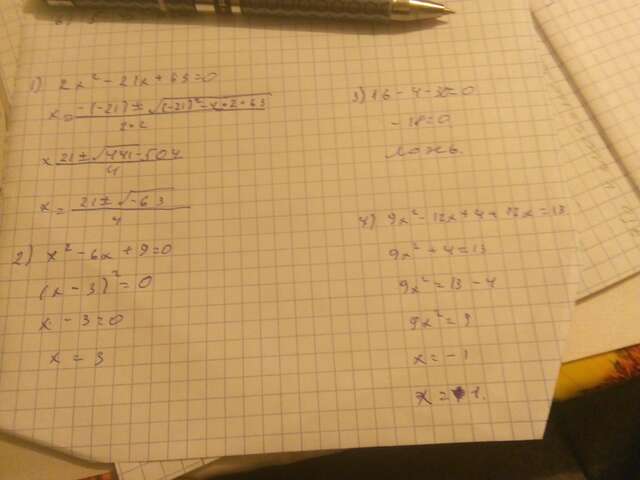 1) 2x² - 21x + 63 = 0
x = (-(-21) ± √((-21)² - 4 * 2 * 63)) / (2 * 2)
x (21 ± √(441 - 504)) / 4
x = (21 ± √(-63)) / 4
2) x² - 6x + 9 = 0
(x - 3)² = 0
x - 3 = 0
x = 3
3) 16 - 4 - 30 = 0
- 18 = 0
Ложь.
4) 9x² - 12x + 4 + 12x = 13
9x² + 4 = 13
9x² = 13 - 4
9x² = 9
x = - 1
x = 1.